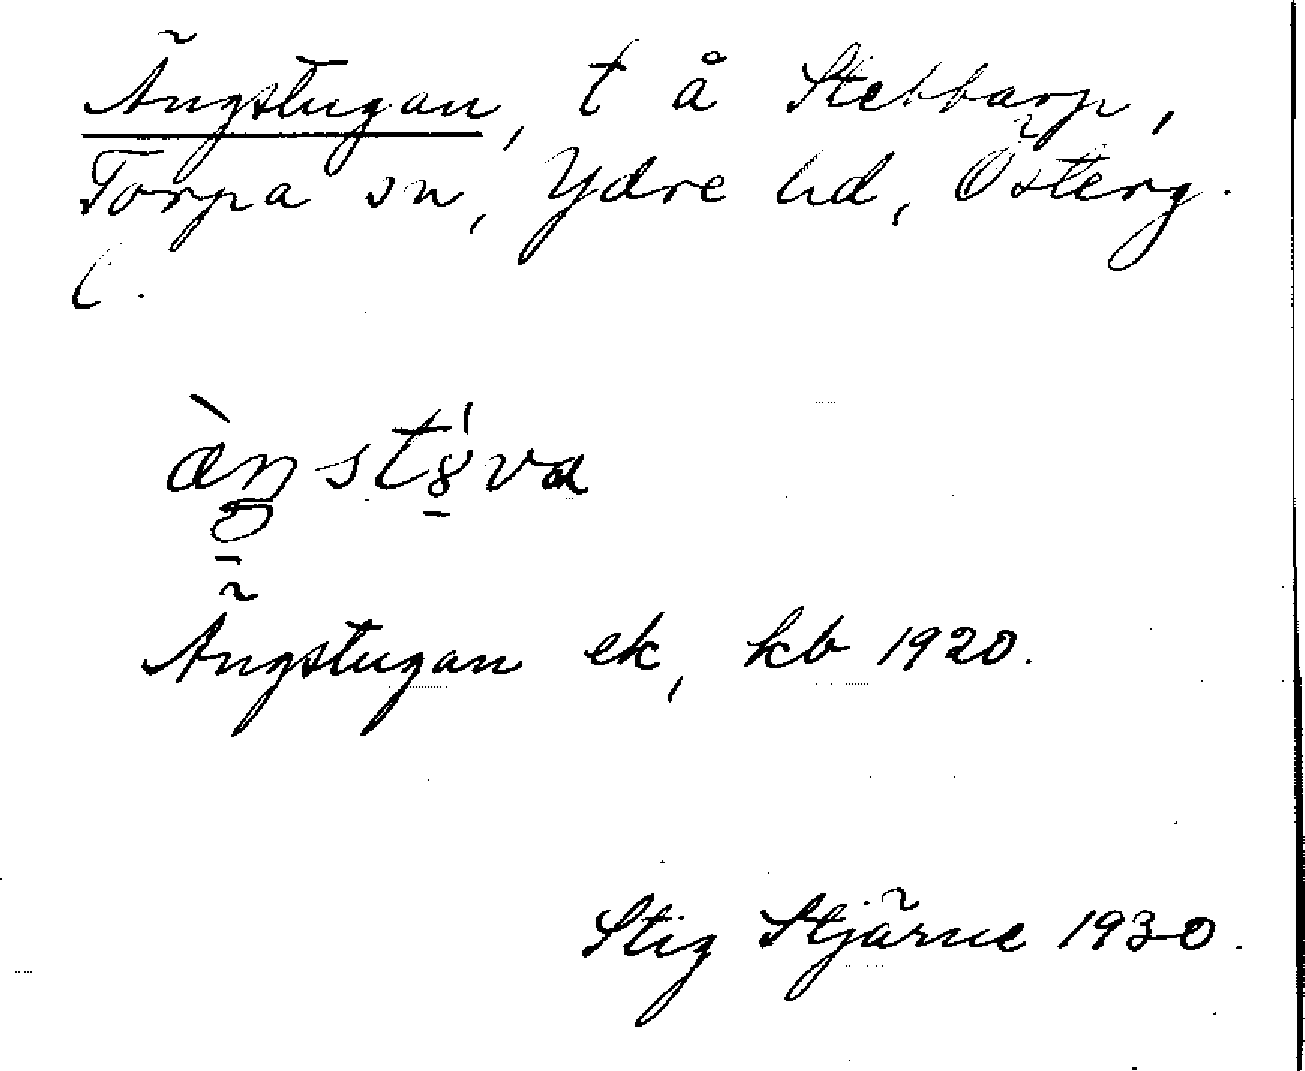 Ängstugan, t å Stebbarp,
Torpa sn, Ydre hd, Österg.
l.
æ̀ŋstẃva
Ängstugan ek, kb 1920.
Stig Stjärne 1930.